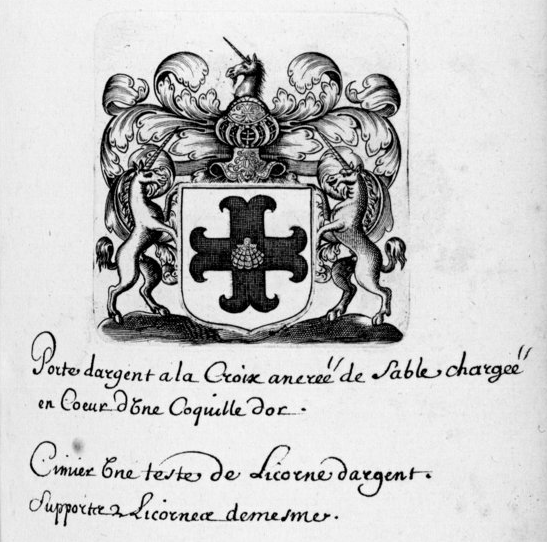 Porte dargent a la Croix ancreé de Sable chargeé
en Coeur d'Vne Coquille dor.
Cimier Vne teste de Licorne dargent.
Supportz 2 Licornes demesme.